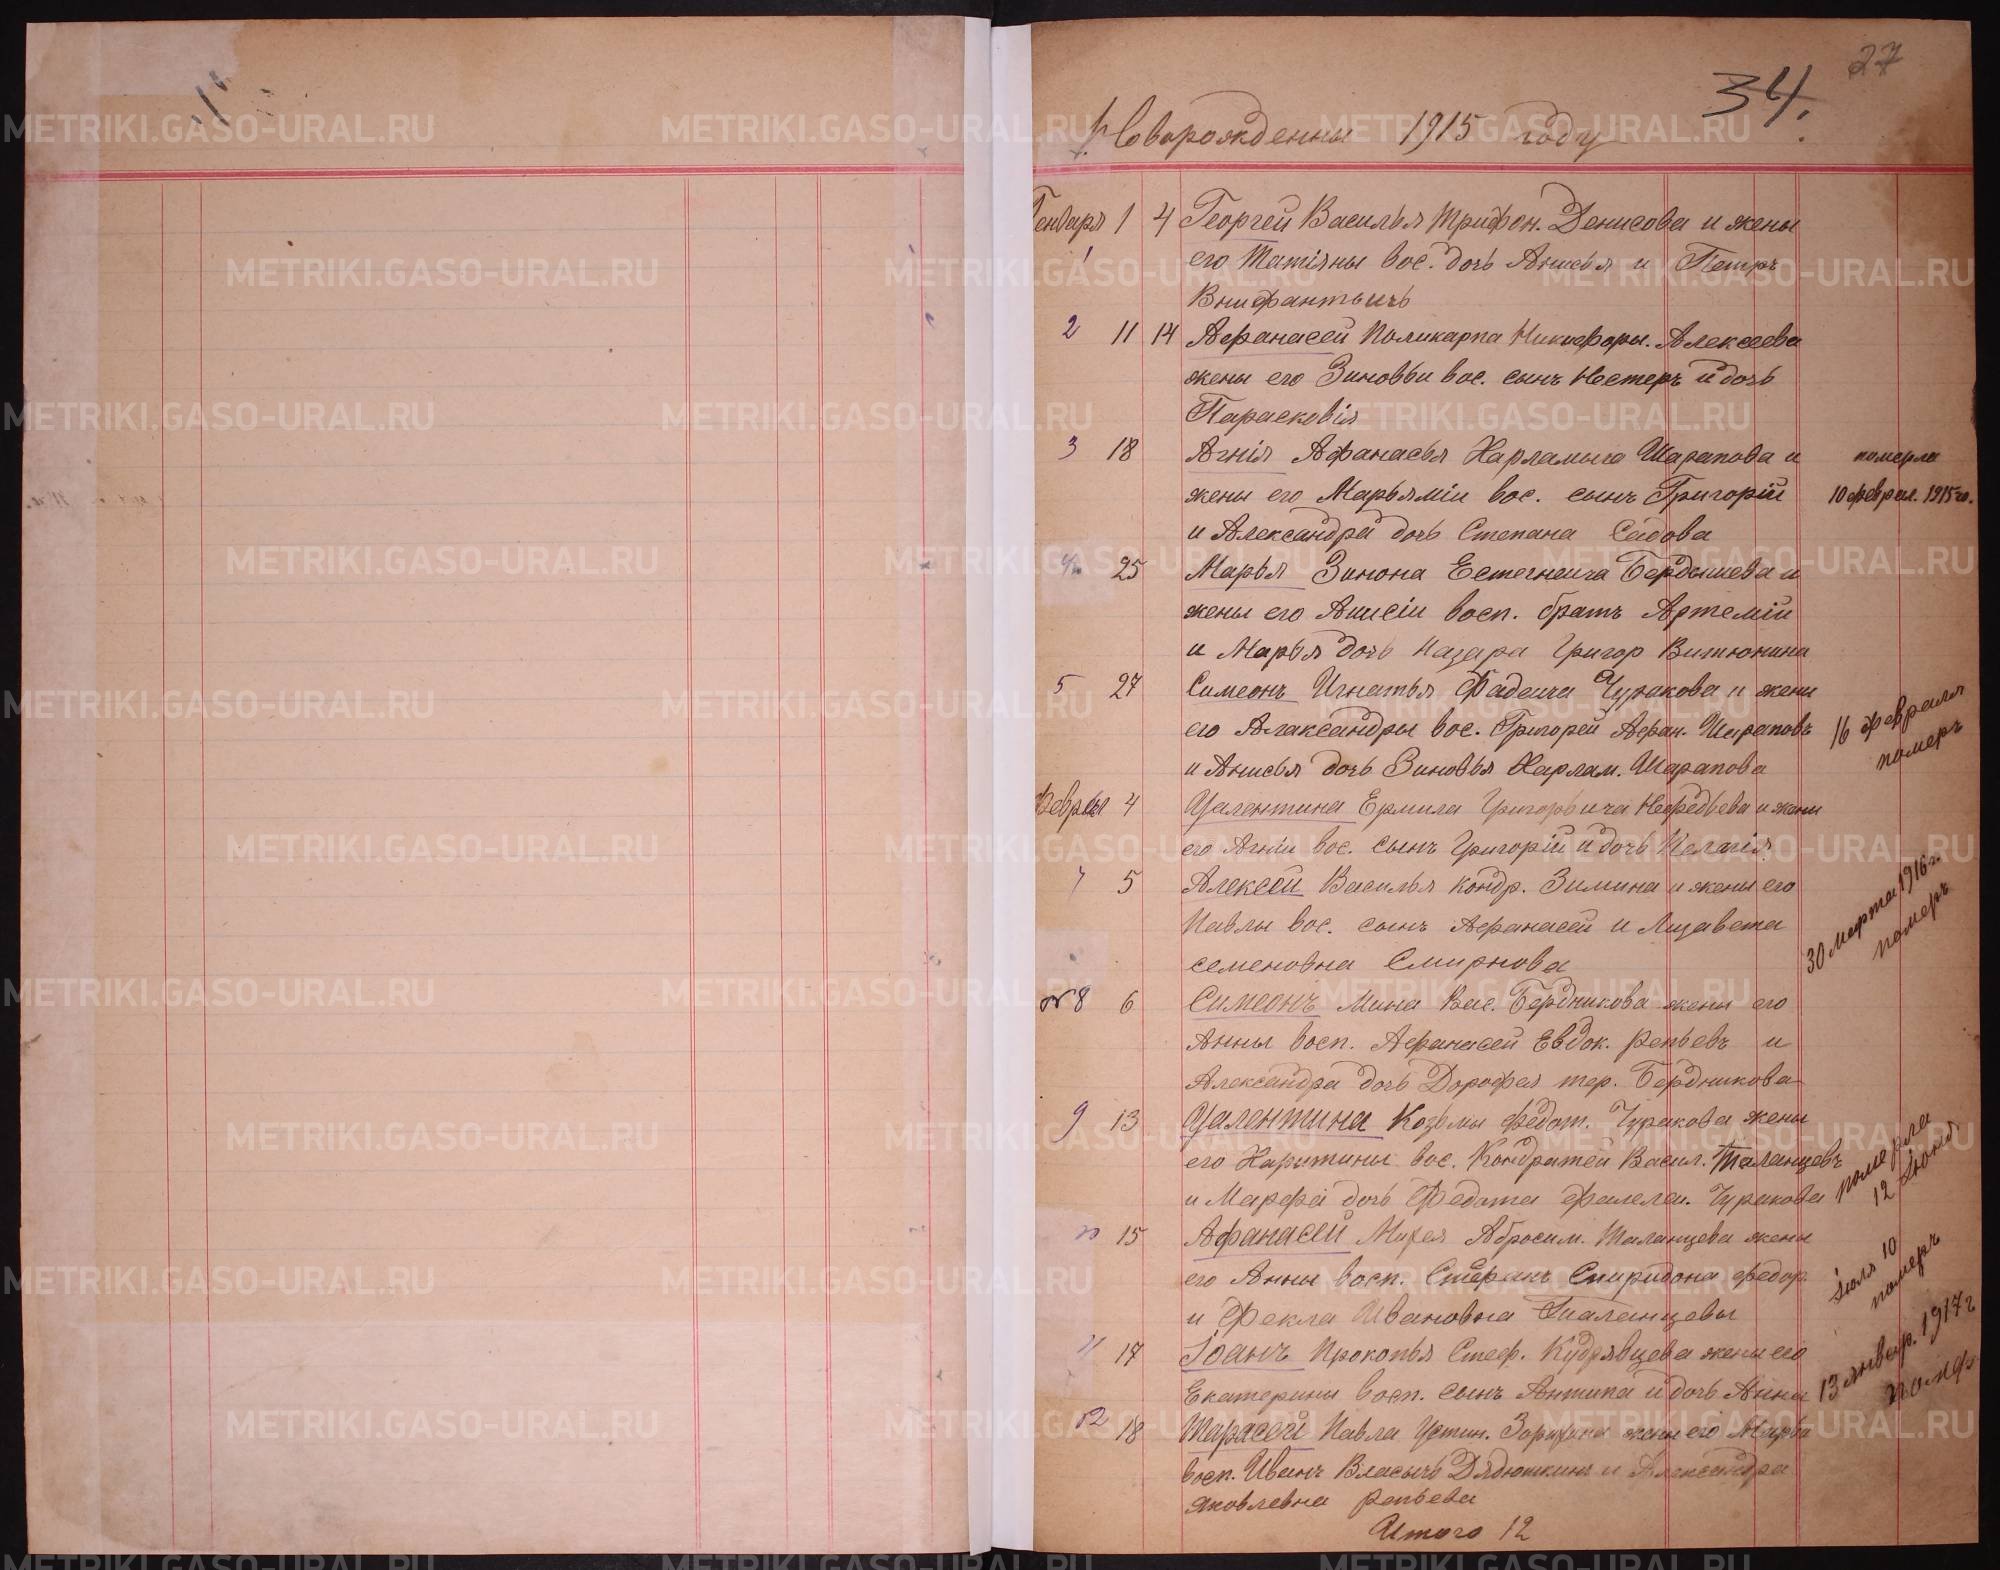 27
34.
Новорожденны 1915 году
Генваря 1 4 Георгей Василья Трифон. Денисова и жены
1 его Татіяны вос. дочь Анисья и Петръ
Внифантьичь
2 11 14 Афанасей Поликарпа Никифоры. Алексеева
жены его Зиновьи вос. сынъ Нестеръ и дочь
Парасковія
3 18 Агнія Афанасья Харламыча Шарапова и померла
жены его Марьяміи вос. сынъ Григорій 10 феврал. 1915 го.
и Александра дочь Степана Садова
4 25 Марья Зинона Естегнеича Бердышева и
жены его Анисіи восп. братъ Артемій
и Марья дочь Назара Григор Витюнина
5 27 Симеонъ Игнатья Фадеича Чуракова и жены
его Алаксандры вос. Григорей Афан. Шараповъ 16 февраля
и Анисья дочь Зиновья Харлам. Шарапова померъ
Февраля 4 Уалентина Ермила Григорьича Нефедьева и жены
его Агніи вос. сынъ Григорій и дочь Пелагія
7 5 Алексей Василья Кондр. Зимина и жены его 30 марта 1916 г.
Павлы вос. сынъ Афанасей и Лизавета померъ
семеновна Смирнова
№ 8 6 Симеонъ Мина Вас. Бердникова жены его
Анны восп. Афанасей Евдок. репьевъ и
Александра дочь Дорофея тер. Бердникова
9 13 Уалентина Козьмы Федот. Чуракова жены
его Харитины вос. Кондратей Васил. Таланцевъ померла
и Марфа дочь Федота Фалелеи. Чуракова 12 Іюня
10 15 Афанасей Михея Абросим. Таланцева жены
его Анны восп. Стефанъ Спиридона федор. Іюля 10
и Фекла Ивановна Таланцевы померъ
11 17 Іоанъ Прокопья Стеф. Кудрявцева жены его 13 январ. 1917 г
Екатерины восп. сынъ Антипа и дочь Анна
12 18 Тарасей Павла Устин. жены его Марьи
восп. Иванъ Власычь Дядюшкинъ и Александра
яковлевна репьева
Итого 12
METRIKI.GASO-URAL.RU